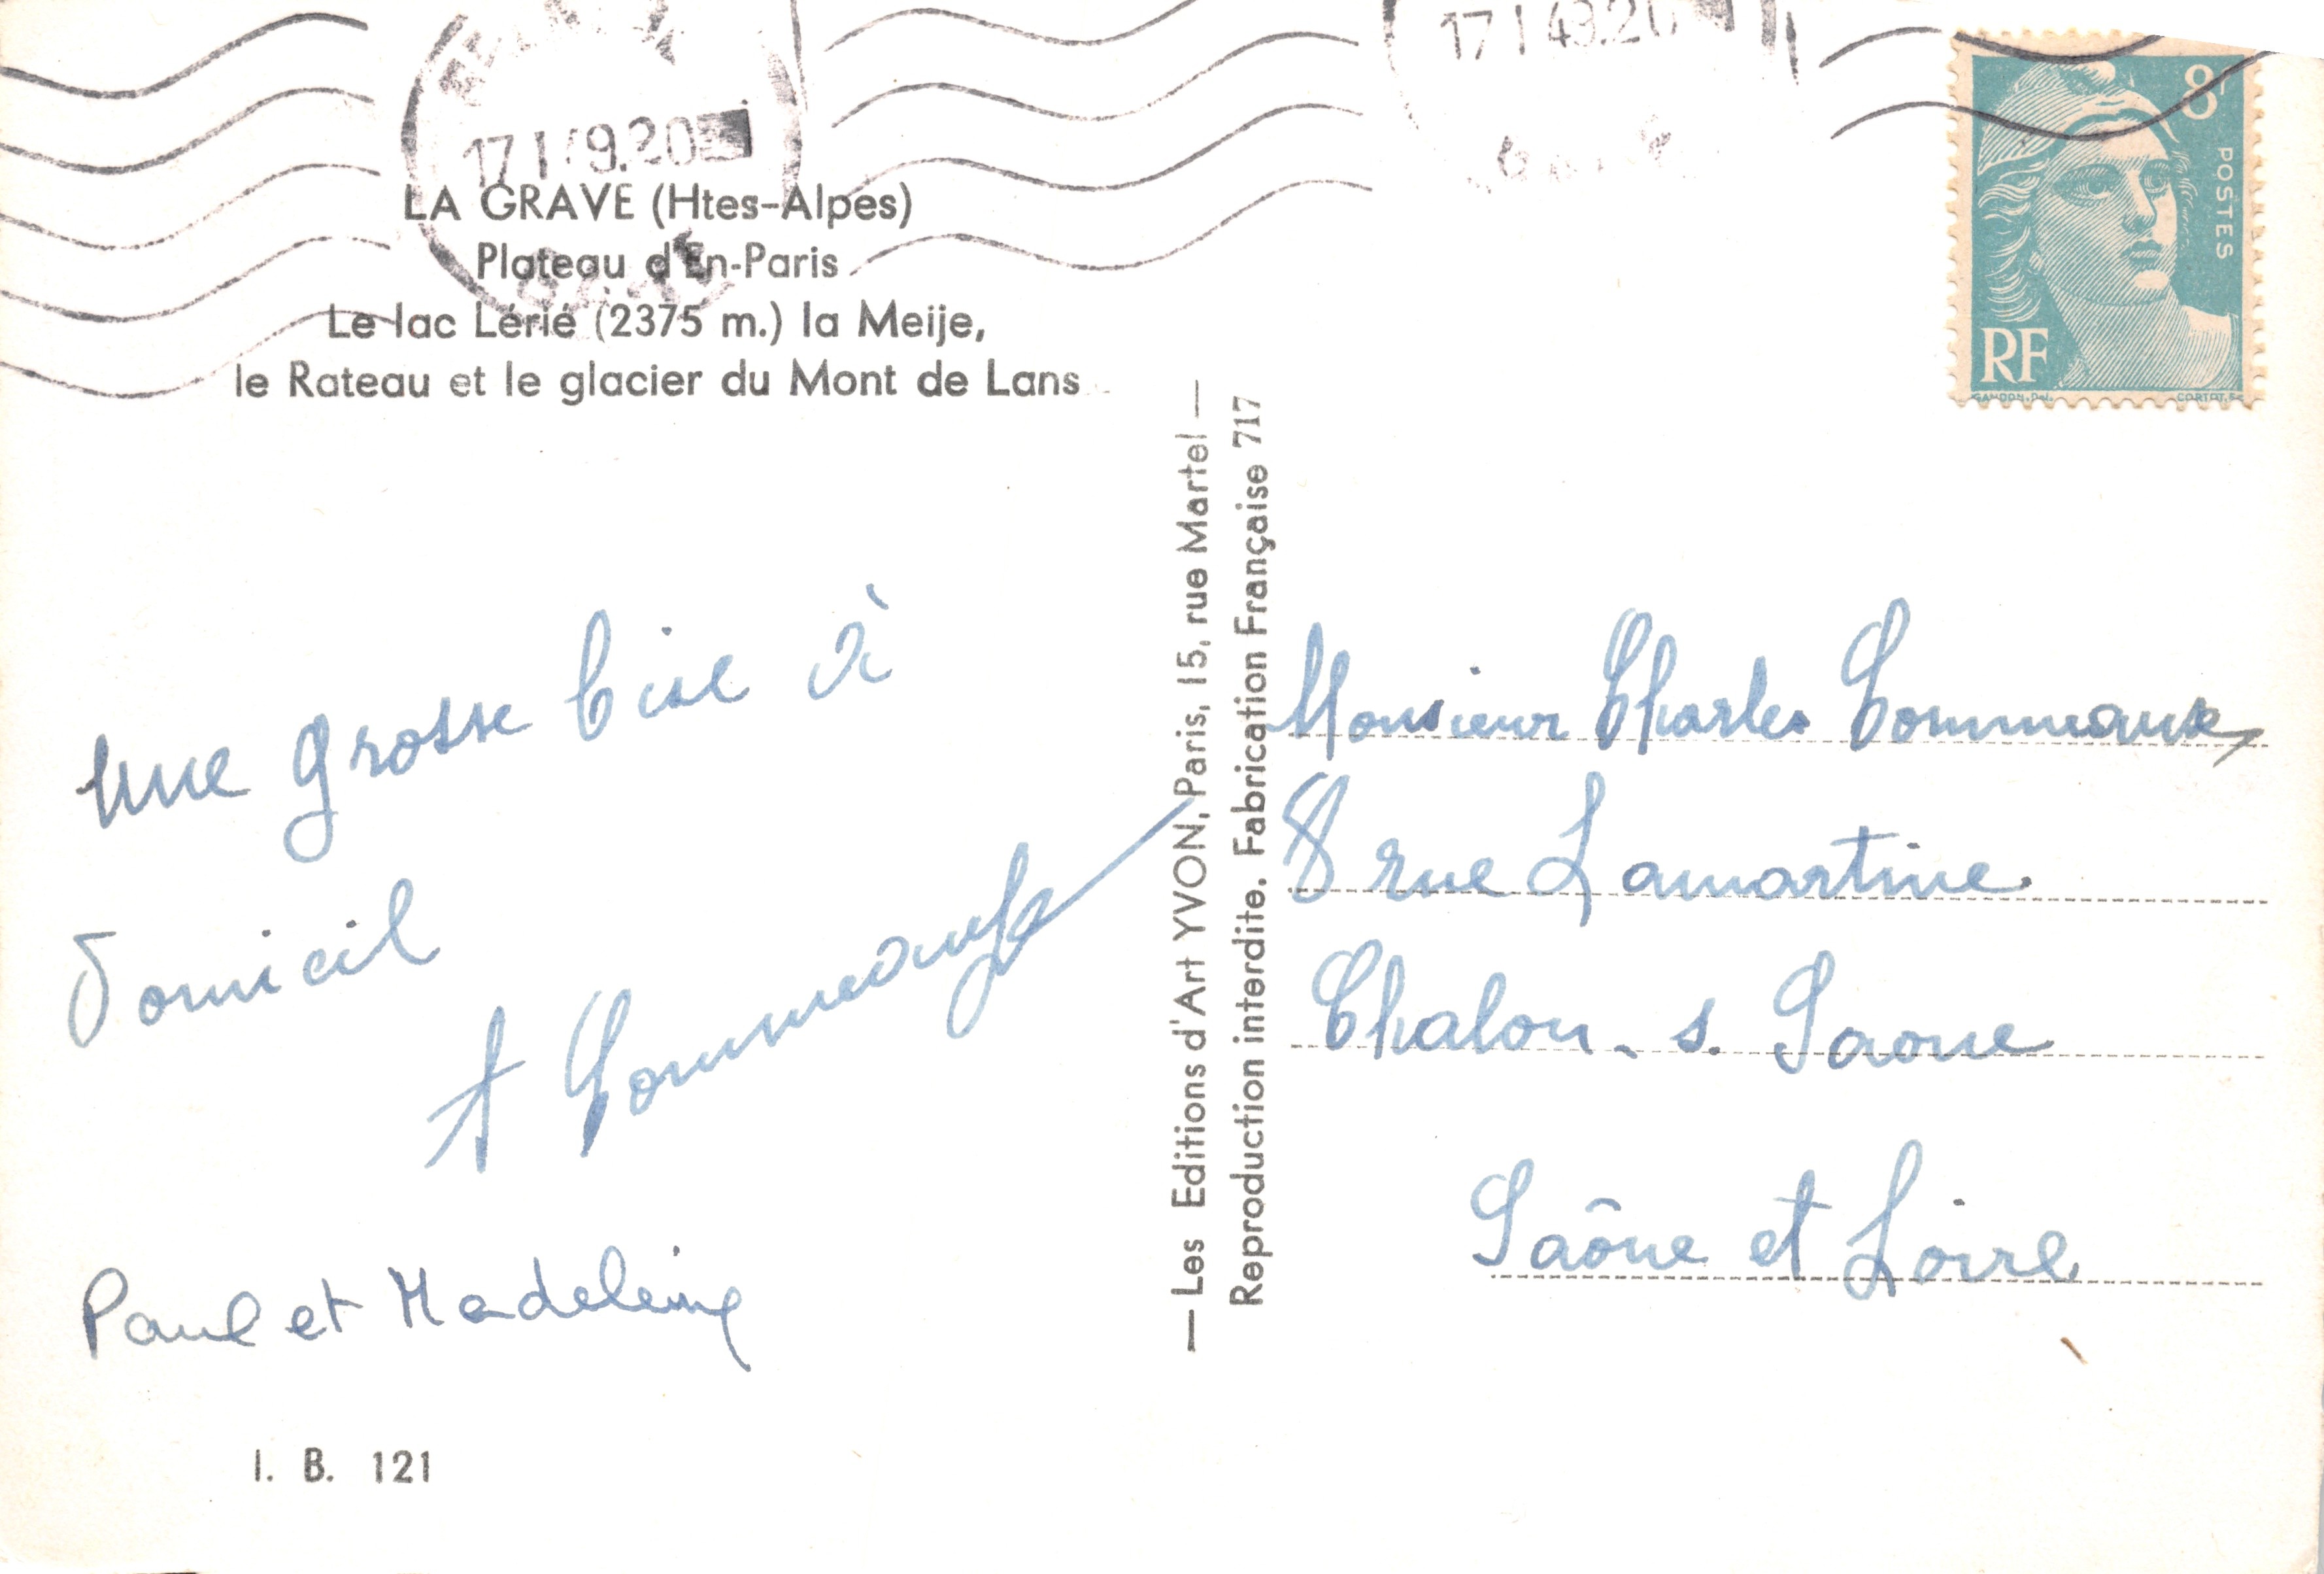 17 I 49.20
17 I 49.20
8F
POSTES
RF
GANDON.Del.
CORTOT.Sc
LA GRAVE (Htes-Alpes)
Plateau d'En-Paris
Le lac Lérié (2375 m.) la Meije,
le Rateau et le glacier du Mont de Lans
une grosse bise à
Domicil
A Commeaux
Paul et Madeleine
I. B. 121
— Les Editions d'Art YVON, Paris, 15, rue Martel —
Reproduction interdite. Fabrication Française 717
Monsieur Charles Commeaux
8 rue Lamartine.
Chalon. s. Saone
Saône et Loire